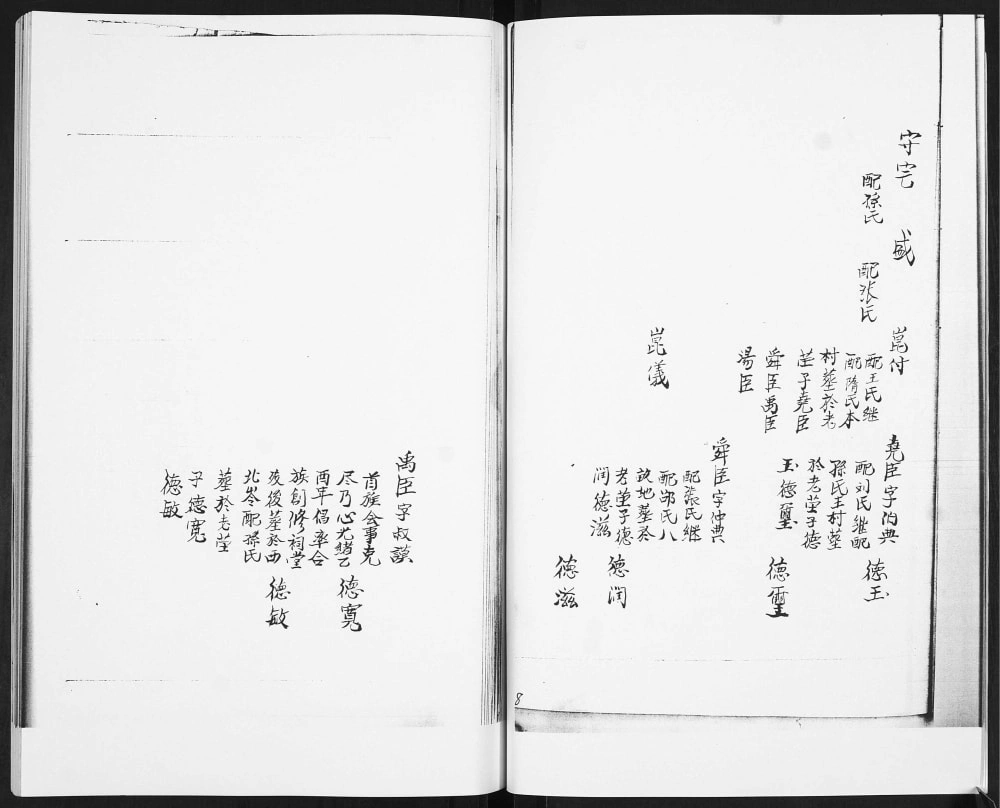 守宅
配孫氏
盛
配张氏
崑付
配王氏继
配隋氏本
村墓於老
茔子堯臣
舜臣禹臣
湯臣
崑儀
堯臣字伯典
配刘氏继配
孫氏王村墓
於老茔子德
玉德璽
舜臣字仲典
配張氏継
配邵氏八
説地墓於
老茔子德
润德滋
德玉
德璽
德润
德滋
禹臣字叔謨
首族会事克
尽乃心光緒乙
酉年倡率合
族創修祠堂
殁後墓於西
北岺配孫氏
墓於老茔
子德寬
德敏
德寬
德敏
8